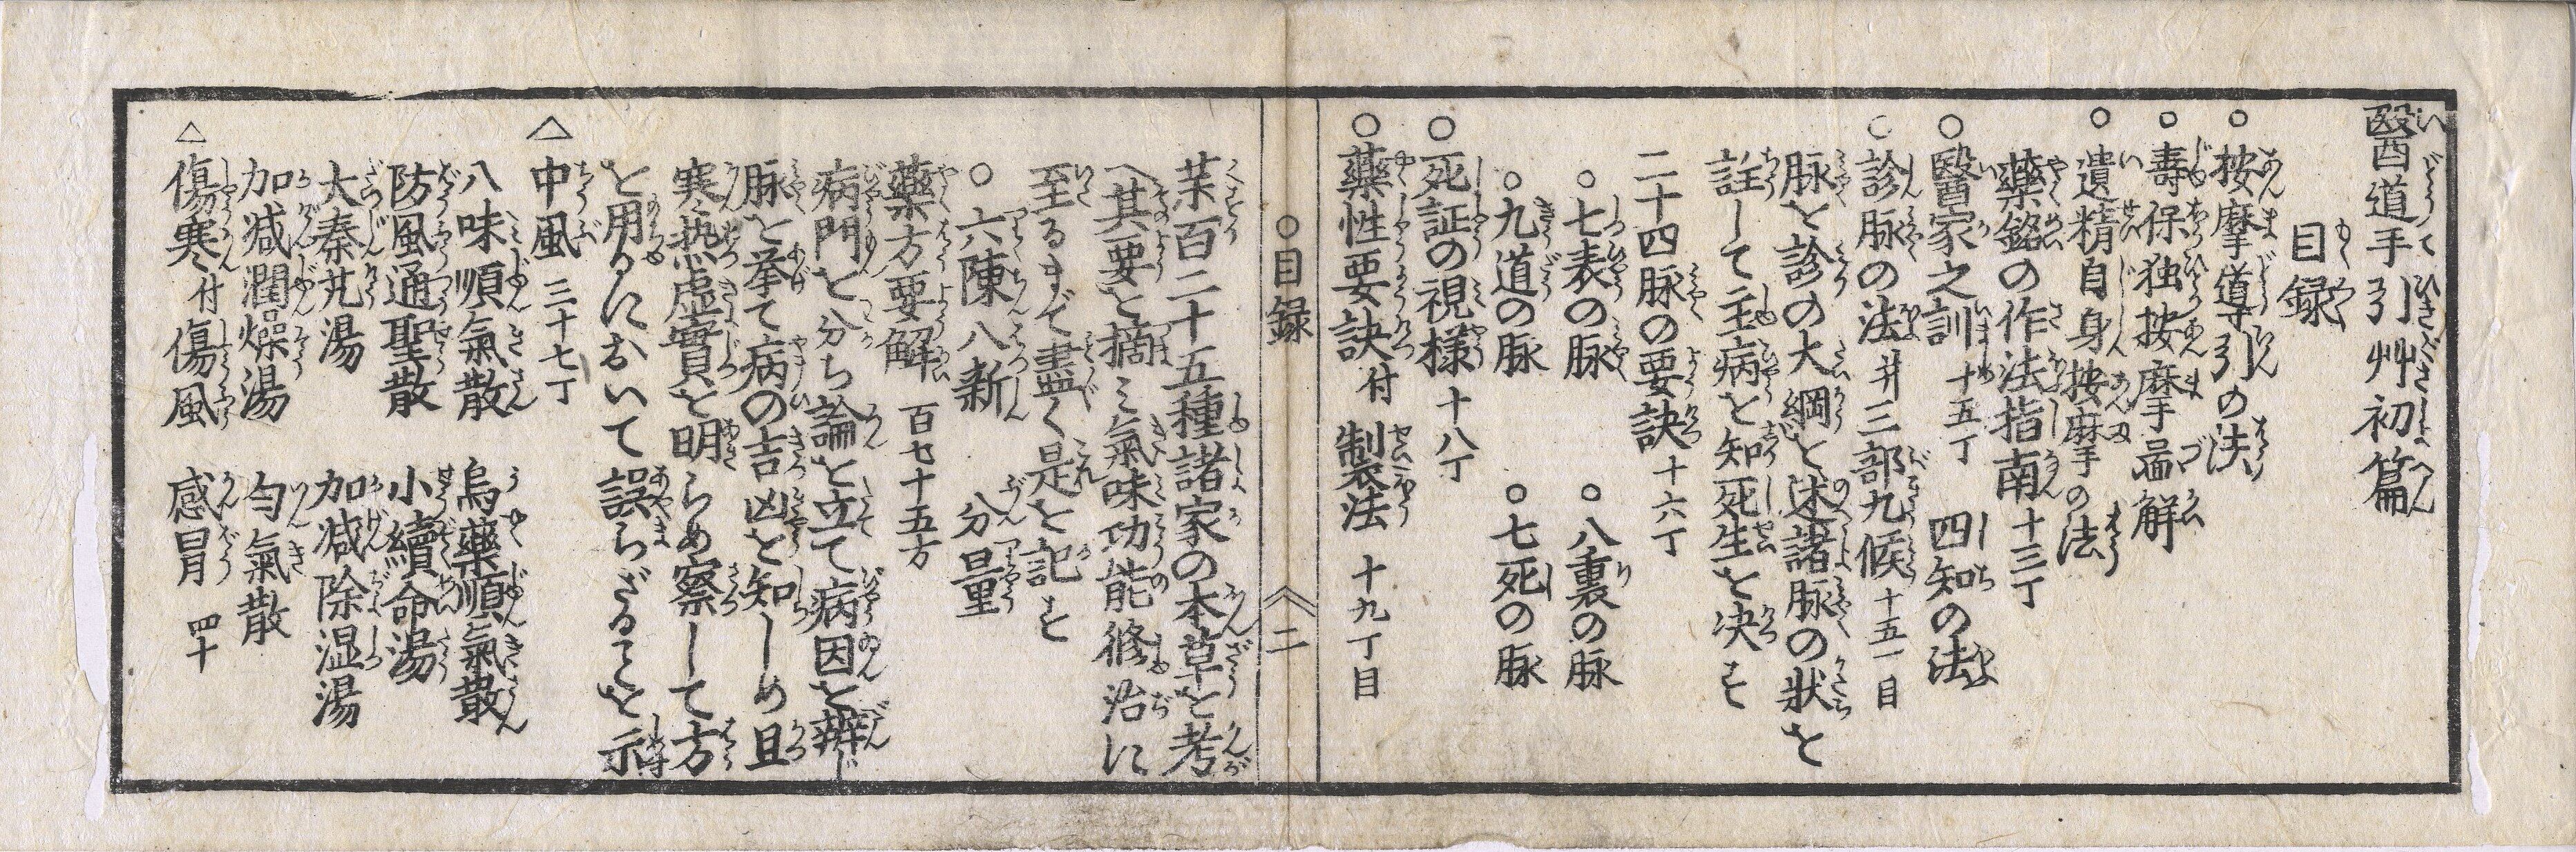 醫道手引艸初篇
目録
○按摩導引の法
○壽保独按摩啚解
○遺精自身按摩の法
藥銘の作法指南十三丁
○醫家之訓十五丁 四知の法
○診脉の法并三部九候十五丁目
脉を診の大綱を述諸脉の狀を
註して主病を知死生を决す
二十四脉の要訣十六丁
○七表の脉 ○八裏の脉
○九道の脉 ○七死の脉
○死証の視様十八丁
○藥性要訣付製法 十九丁目
○目録 二
藥百二十五種諸家の本草を考
へ其要を摘ミ氣味功能修治に
至るまで盡く是を記す
○六陳八新 分量
藥方要解 百七十五方
病門を分ち論を立て病因を辨じ
脉を挙て病の吉凶を知しめ且
寒热虚實を明らめ察して方
を用るにおいて誤らざることを示
△中風 三十七丁
八味順氣散 烏藥順氣散
防風通聖散 小續命湯
大秦艽湯 加减除湿湯
加减潤燥湯 勻氣散
△傷寒付傷風 感冒 四十